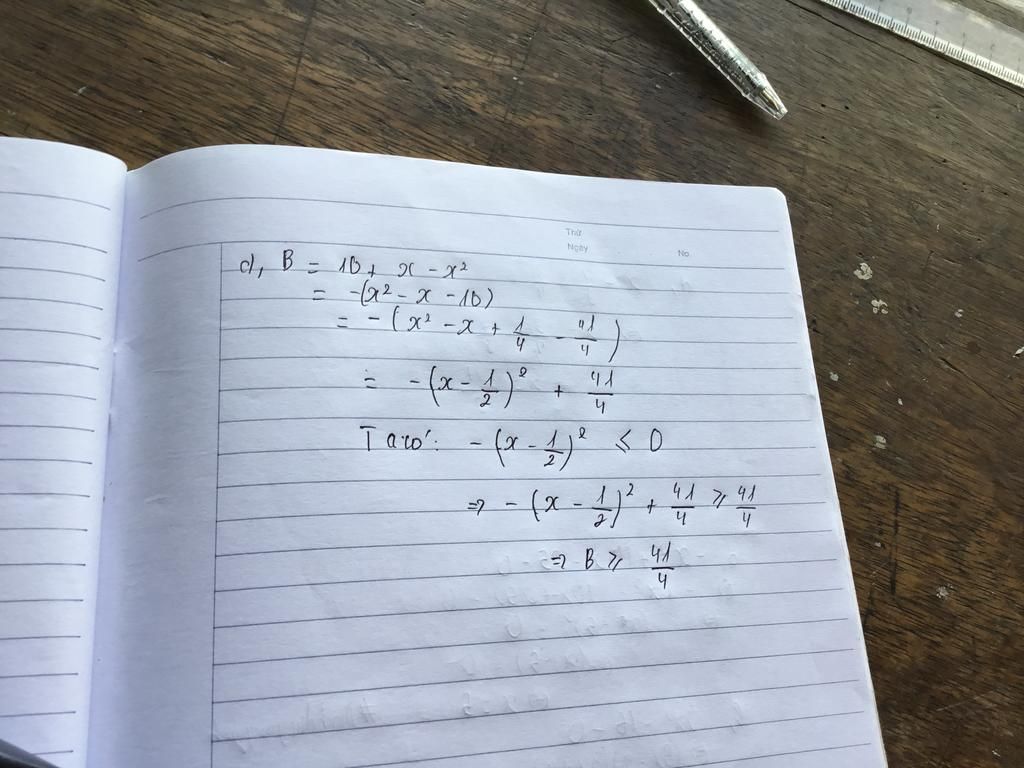 Thứ
Ngày
No.
d, B = 10 + x - x²
= -(x² - x - 10)
= -(x² - x + 1/4 - 41/4)
= -(x - 1/2)² + 41/4
Ta có: -(x - 1/2)² ≤ 0
=> -(x - 1/2)² + 41/4 ≥ 41/4
=> B ≥ 41/4